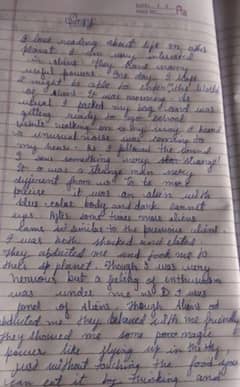 Story
I love reading about life on other
planet I am very interested
in aliens They had many
useful powers One day I
might be able to enter the world
of aliens It was morning As
usual I packed my bag and was
getting ready to go school
while walking on my way I heard
a unusual noise was coming to
my hears As I follow the sound
I saw something very strange!
It was a strange man very
different from us to be more
precise it was an alien with
blue color body and dark
eyes After some time more aliens
came in similar to the previous alien
I was both shocked and elated
They abducted me and took me to
their planet. Though I was very
nervous but a feeling of enthusiasm
was under me
of aliens Though Aliens
abducted me They behaved with me friendly
They showed me some magic
powers like flying up in the sky
just without touching the food
can eat it by thinking and